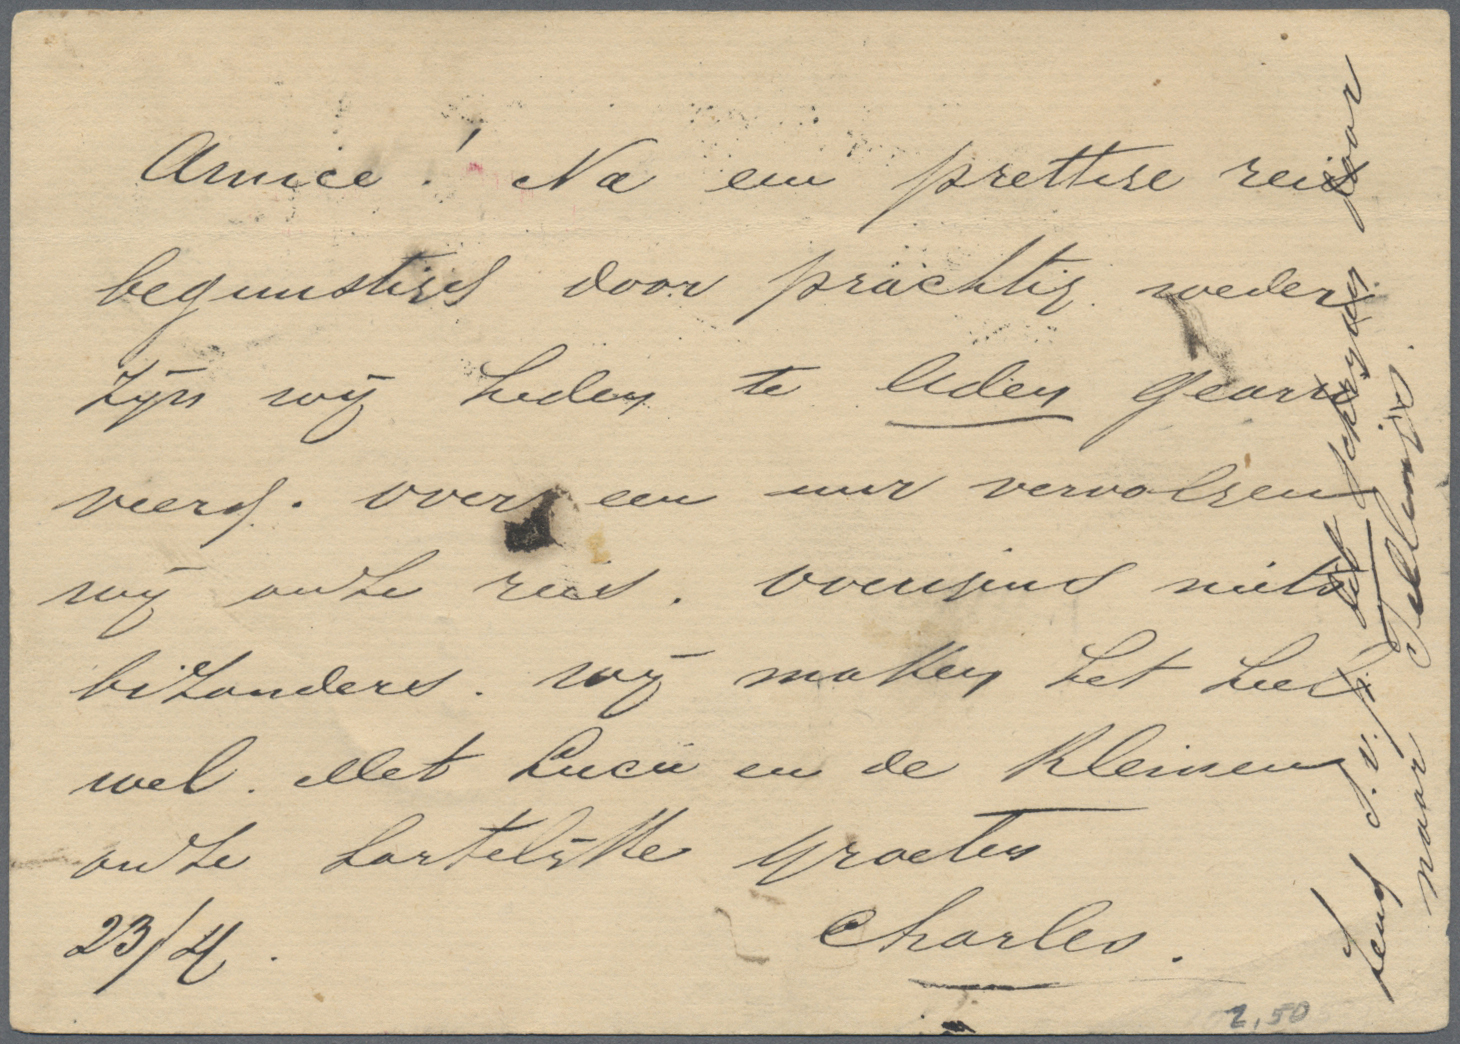 Amice! Na een prettige reis
begunstigd door prachtig weder
zijn wij heden te Aden gearri
veerd. Over een uur vervolgen
wij onze reis. Overigens niets
bizonders. Wij maken het heel
wel. Met Lucie en de kleinen
onze hartelijke groeten
23/4.
Charles.
Zend s.v.p. dit schrijven door
naar
2,50